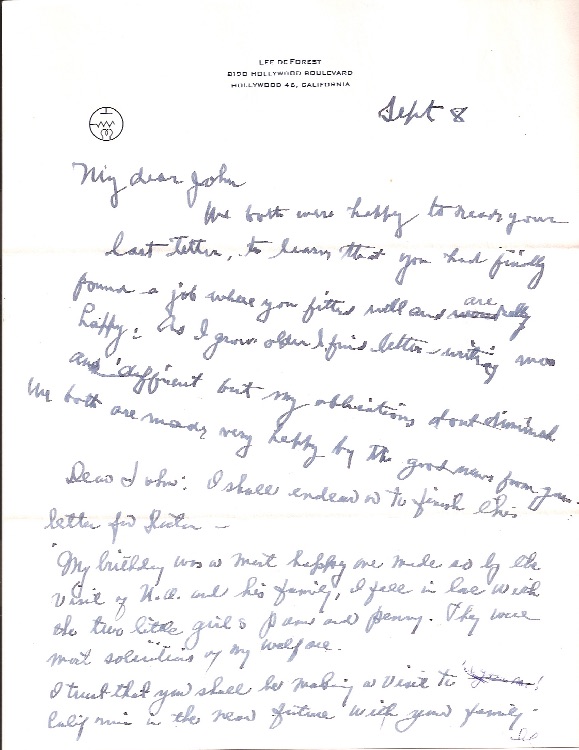 LEE DE FOREST
8190 HOLLYWOOD BOULEVARD
HOLLYWOOD 46, CALIFORNIA
Sept 8
My dear John
We both were happy to read your
last letter, to learn that you had finally
found a job where you fitted well and are really
happy. As I grow older I find letter-writing more
and different but my obligations dont diminish
We both are made very happy by the good news from you.
Dear John: I shall endeavor to finish this
letter for
My birthday was a most happy one made so by the
visit of and his family, I fell in love with
the two little girls Pam and Penny. They were
most solicitous of my welfare.
I trust that you shall be making a visit to
California in the near future with your family.